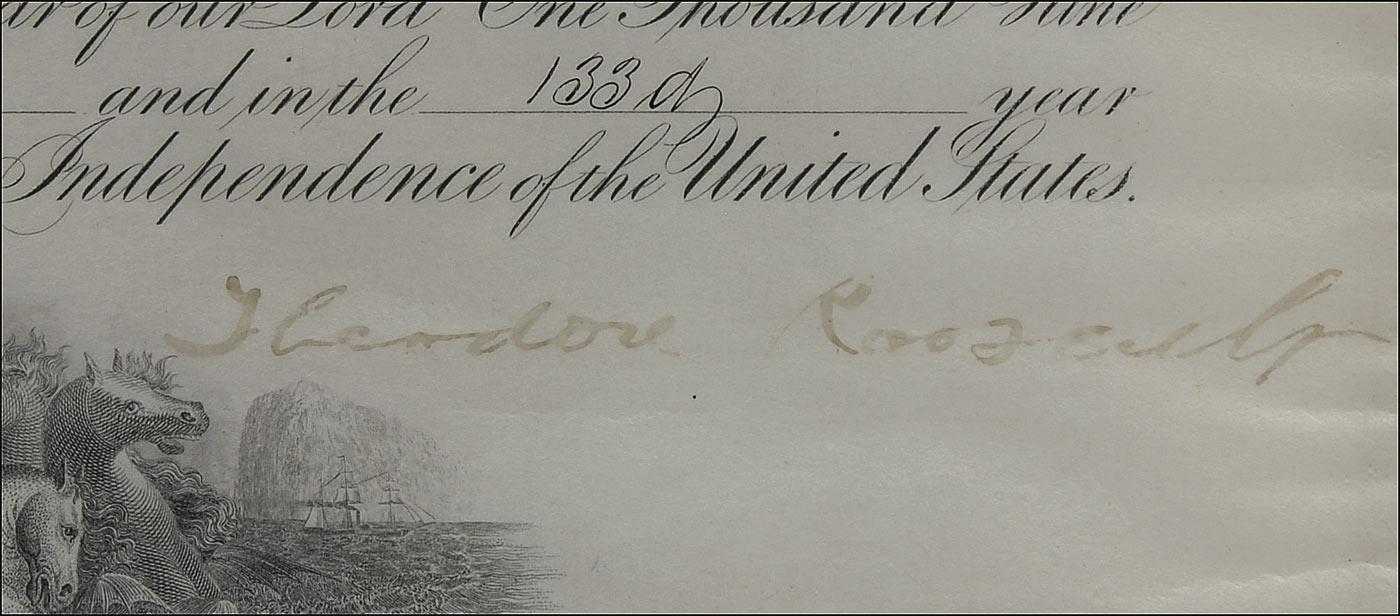 ar of our Lord One Thousand Nine
and in the 133d year
Independence of the United States.
Theodore Roosevelt